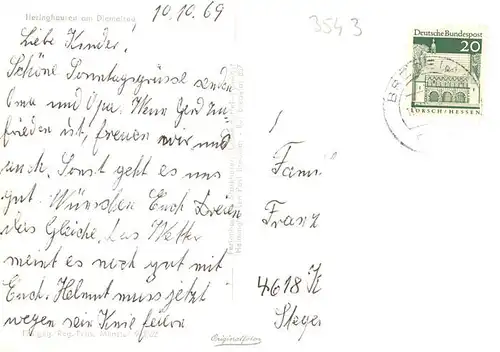 Heringhausen am Diemelsee
10.10.69
3543
Liebe Kinder!
Schöne Sonntagsgrüsse senden
Oma und Opa. Wenn Gerd zu-
frieden ist, freuen wir uns
auch. Sonst geht es uns
gut. Wünschen Euch Dreien
das Gleiche. Das Wetter
meint es noch gut mit
Euch. Helmut muss jetzt
wegen sein Knie
Originalfoto
Deutsche Bundespost
20
LORSCH/HESSEN
Famil
Franz
4618 K